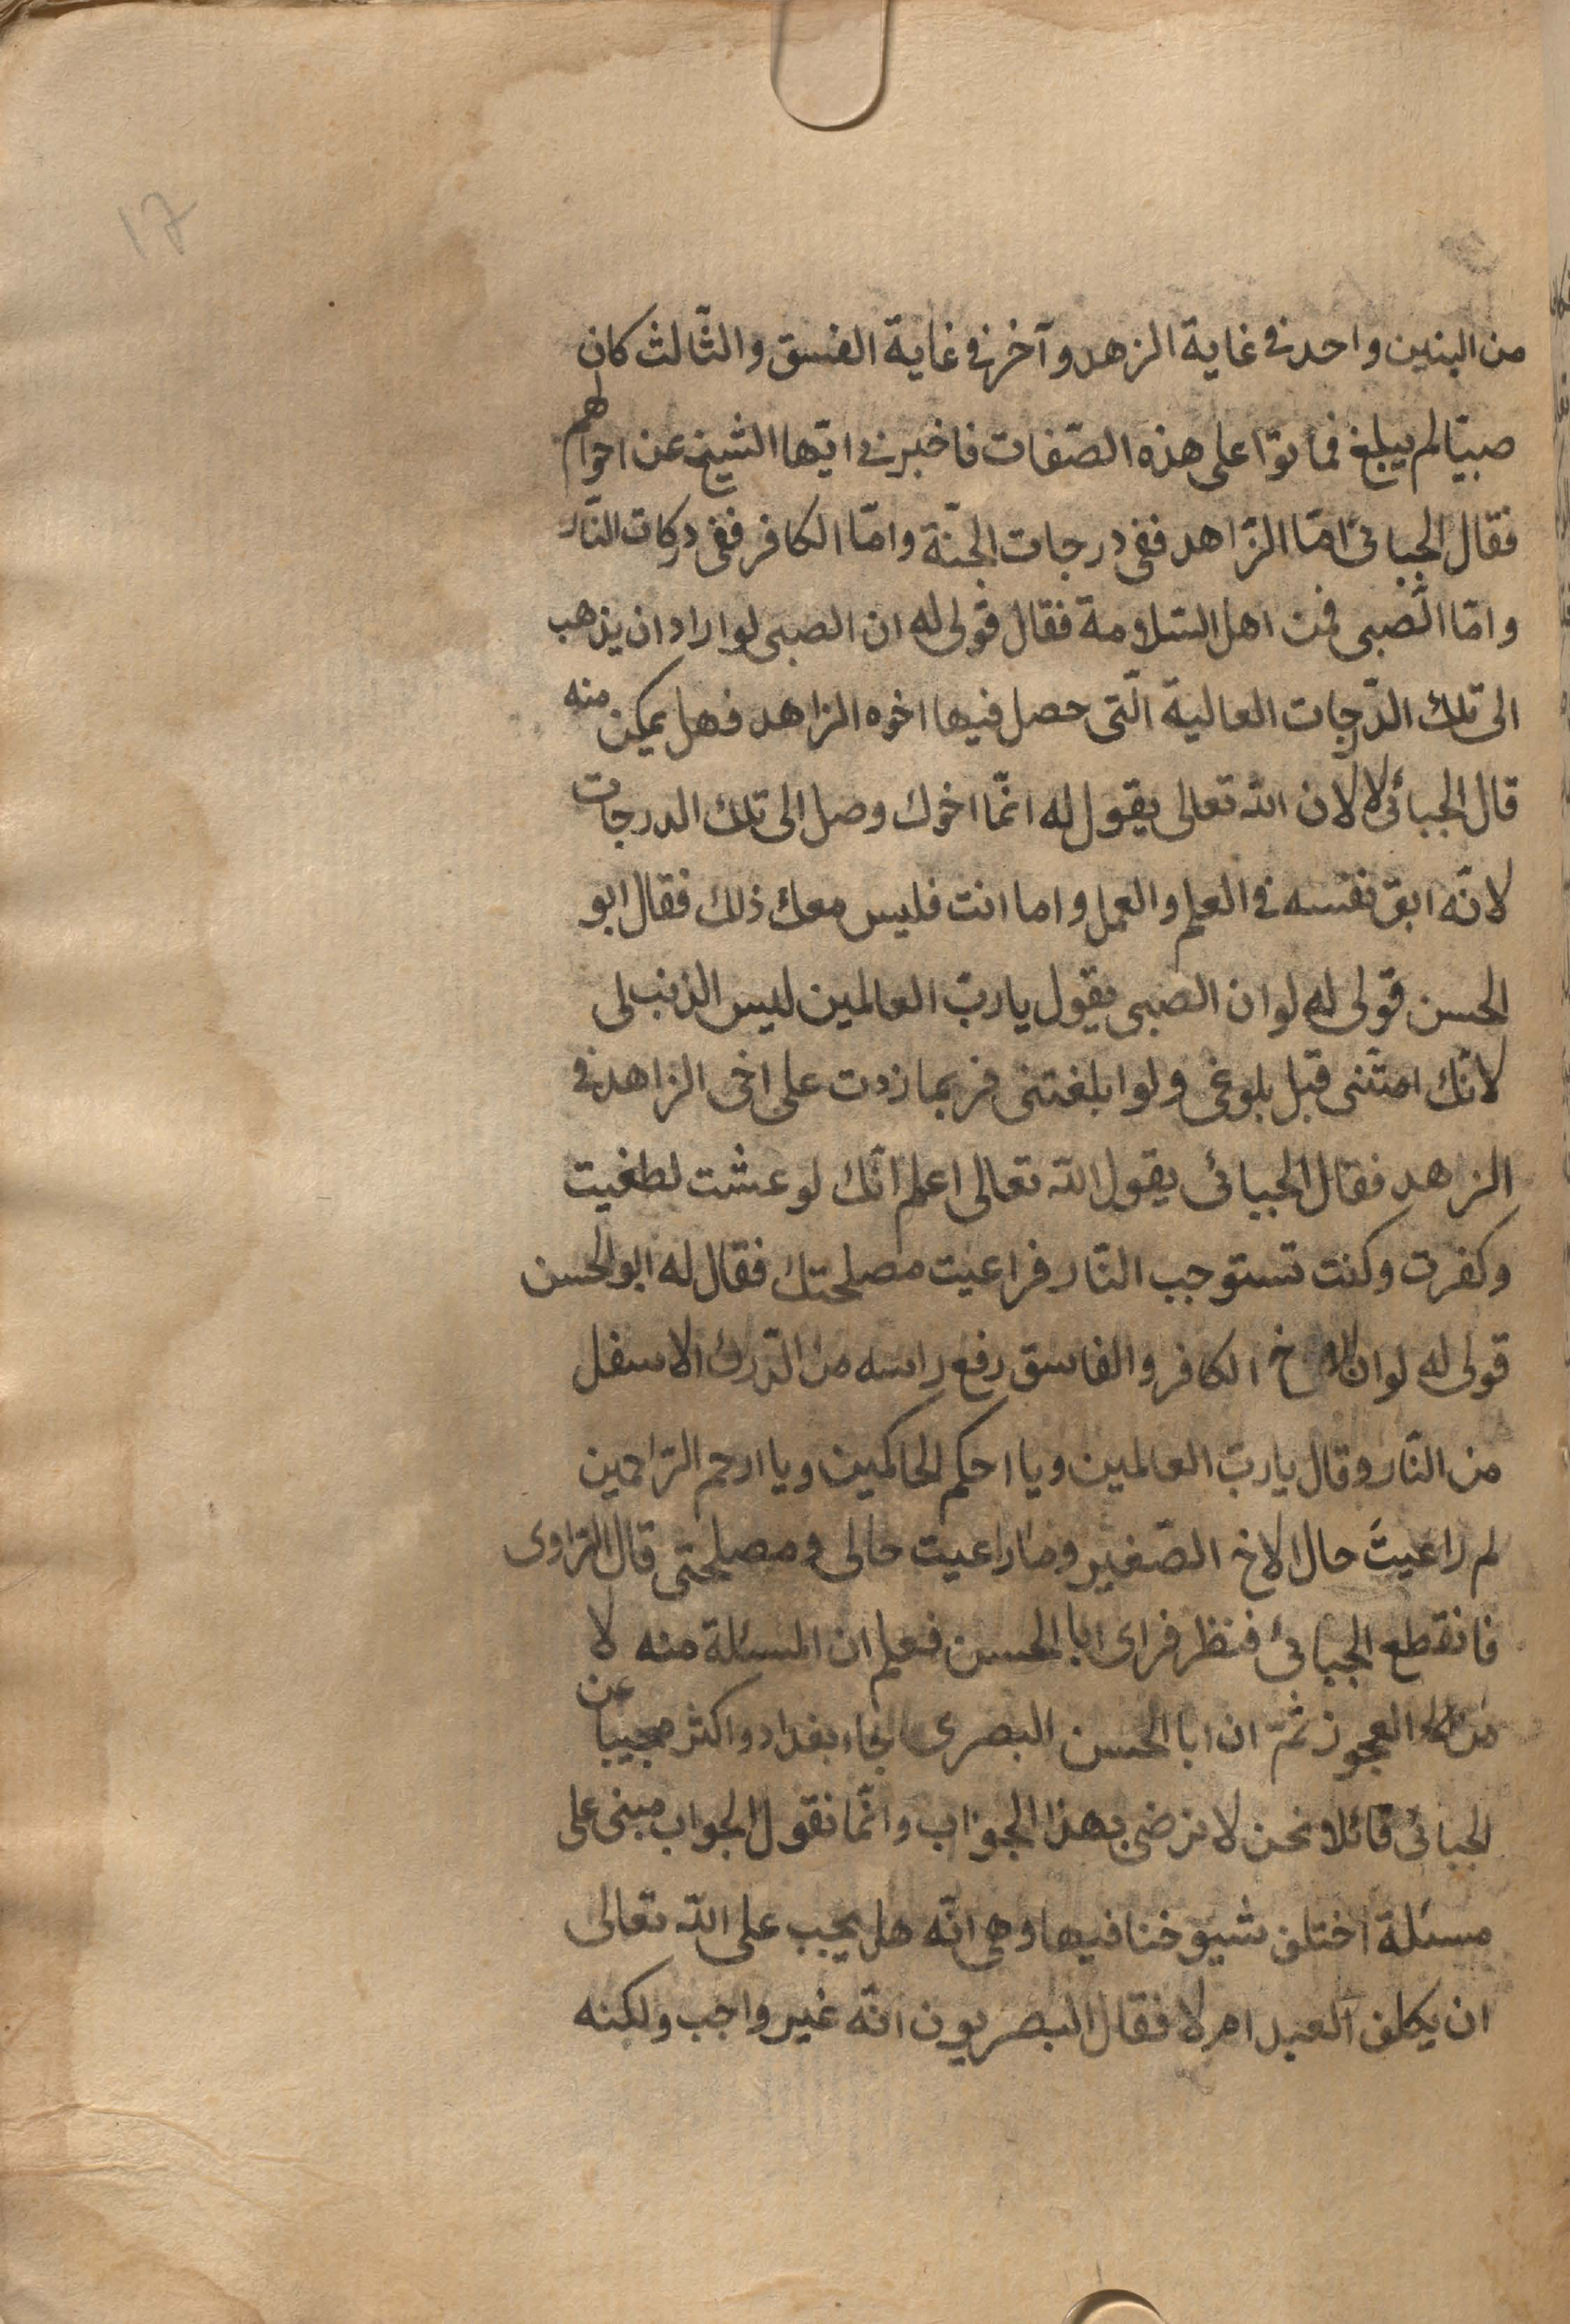 17
من البنين واحد في غاية الزهد وآخر في غاية الفسق والثّالث كان
صبيّا لم يبلغ فماتوا على هذه الصّفات فاخبرنى ايّها الشيخ عن احوالهم
فقال الجبائى امّا الزّاهد ففى درجات الجنّة وامّا الكافر ففى دركات النّار
وامّا الصّبى فمن اهل السّلامة فقال قولى له ان الصبى لو اراد ان يذهب
الى تلك الدّرجات العالية الّتى حصل فيها اخوه الزاهد فهل يمكن منه
قال الجبائى لا لان الله تعالى يقول له انّما اخوك وصل الى تلك الدرجات
لانّه اتعب نفسه في العلم والعمل واما انت فليس معك ذلك فقال ابو
الحسن قولى له لو ان الصبى يقول يا ربّ العالمين ليس الذنب لى
لانّك امتّنى قبل بلوغى ولو ابلغتنى فربما زدت على اخى الزاهد في
الزهد فقال الجبائى يقول الله تعالى اعلم انّك لو عشت لطغيت
وكفرت وكنت تستوجب النّار فراعيت مصلحتك فقال له ابو الحسن
قولى له لو ان الاخ الكافر والفاسق رفع راسه من الدّرك الاسفل
من النّار وقال يا ربّ العالمين ويا احكم الحاكمين ويا ارحم الرّاحمين
لم راعيتَ حال الاخ الصّغير وما راعيت حالى ومصلحتى قال الرّاوى
فانقطع الجبائى فنظر فراى ابا الحسن فعلم ان المسئلة منه لا
من العجوز ثمّ ان ابا الحسن البصرى جاء بغداد واكثر مجيبا عن
الجبائى قائلا نحن لا نرضى بهذا الجواب وانّما نقول الجواب مبنى على
مسئلة اختلف شيوخنا فيها وهى انّه هل يجب على الله تعالى
ان يكلف العبد ام لا فقال البصريون انّه غير واجب ولكنه